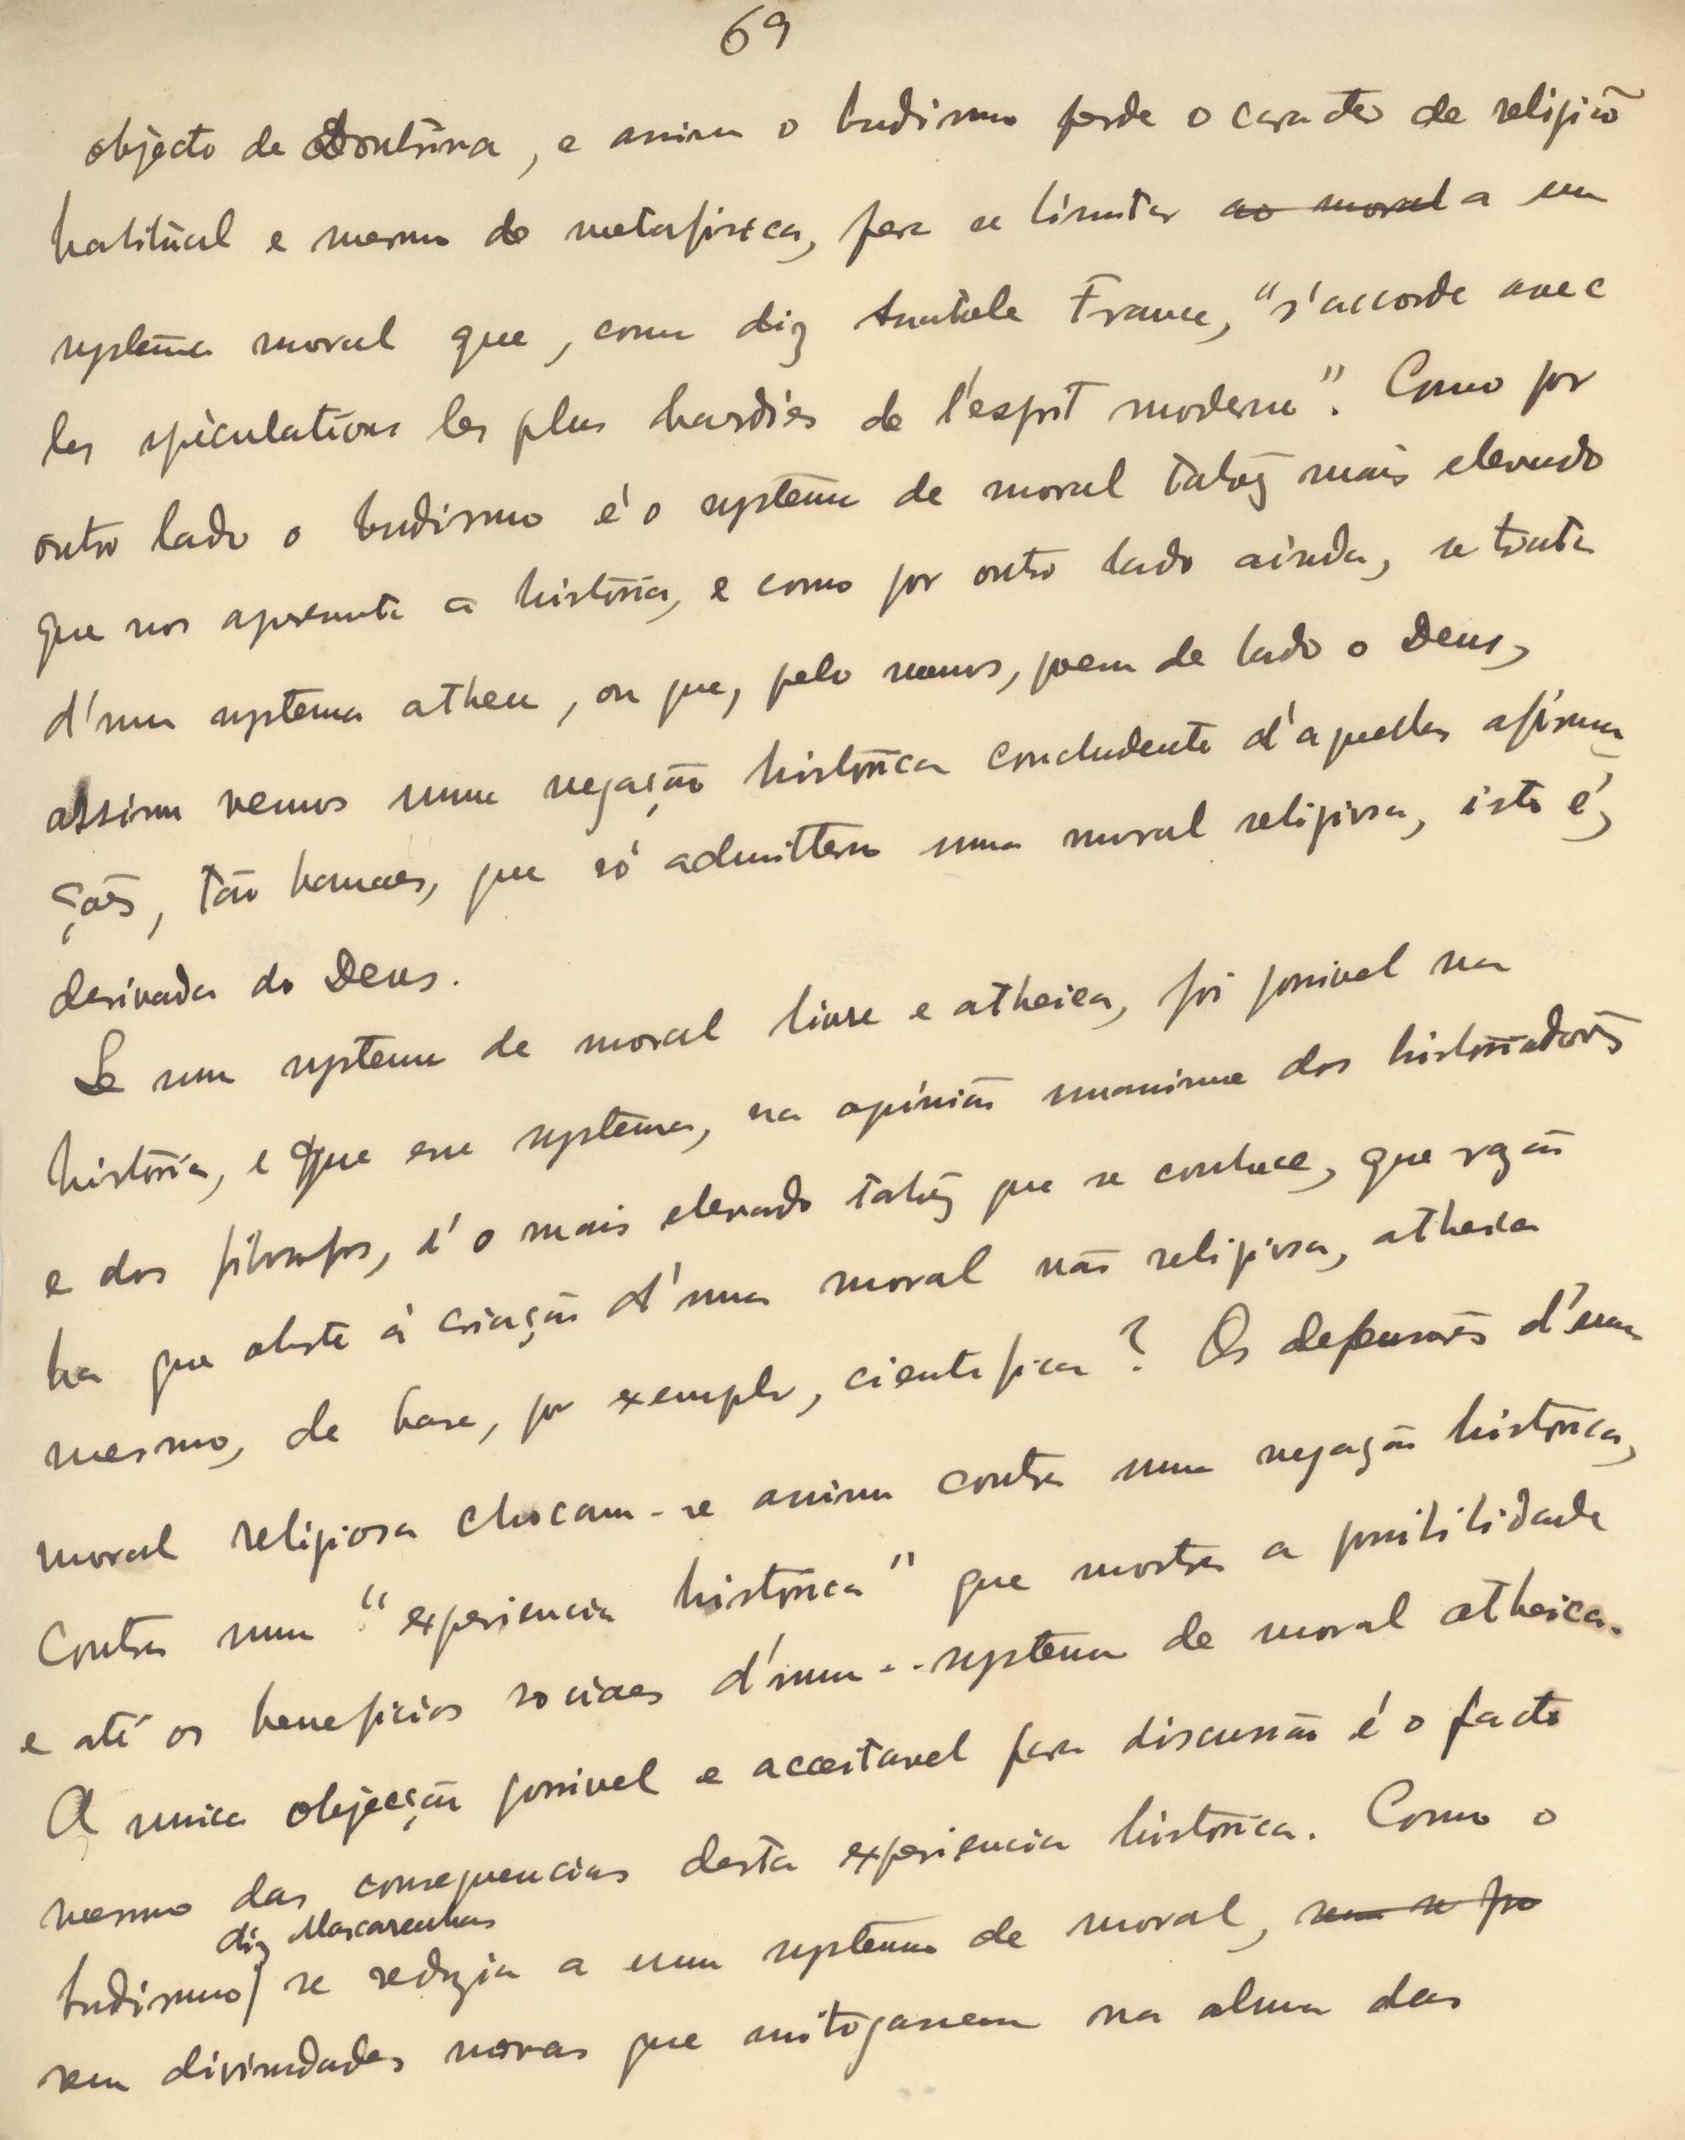 69
objecto de doutrina, e assim o budismo perde o caracter de religião
habitual e mesmo de metafisica, para se limitar ao moral a um
systema moral que, como diz Anatole France, "s'accorde avec
les spéculations les plus hardies de l'esprit moderne". Como por
outro lado o budismo é o systema de moral talvez mais elevado
que nos apresenta a historia, e como por outro lado ainda, se trata
d'um systema atheu, ou que, pelo menos, poem de lado o Deus,
assim vemos uma negação historica concludente d'aquellas afirma-
ções, tão banaes, que só admittem uma moral religiosa, isto é,
derivada do Deus.
Se um systema de moral livre e atheica, foi possivel na
historia, e que esse systema, na opinião unanime dos historiadores
e dos filosofos, é o mais elevado talvez que se conhece, que rasão
ha que obste á criação d'uma moral não religiosa, atheica
mesmo, de base, por exemplo, cientifica? Os defensores d'uma
moral religiosa chocam-se assim contra uma negação historica,
contra uma "experiencia historica" que mostra a possibilidade
e até os beneficios sociaes d'um - systema de moral atheica.
A unica objecção possivel e acceitavel para discussão é o facto
mesmo das consequencias desta experiencia historica. Como o
diz Mascarenhas
budismo se reduzia a um systema de moral, sem se po
sem divindades novas que mitogassem na alma das